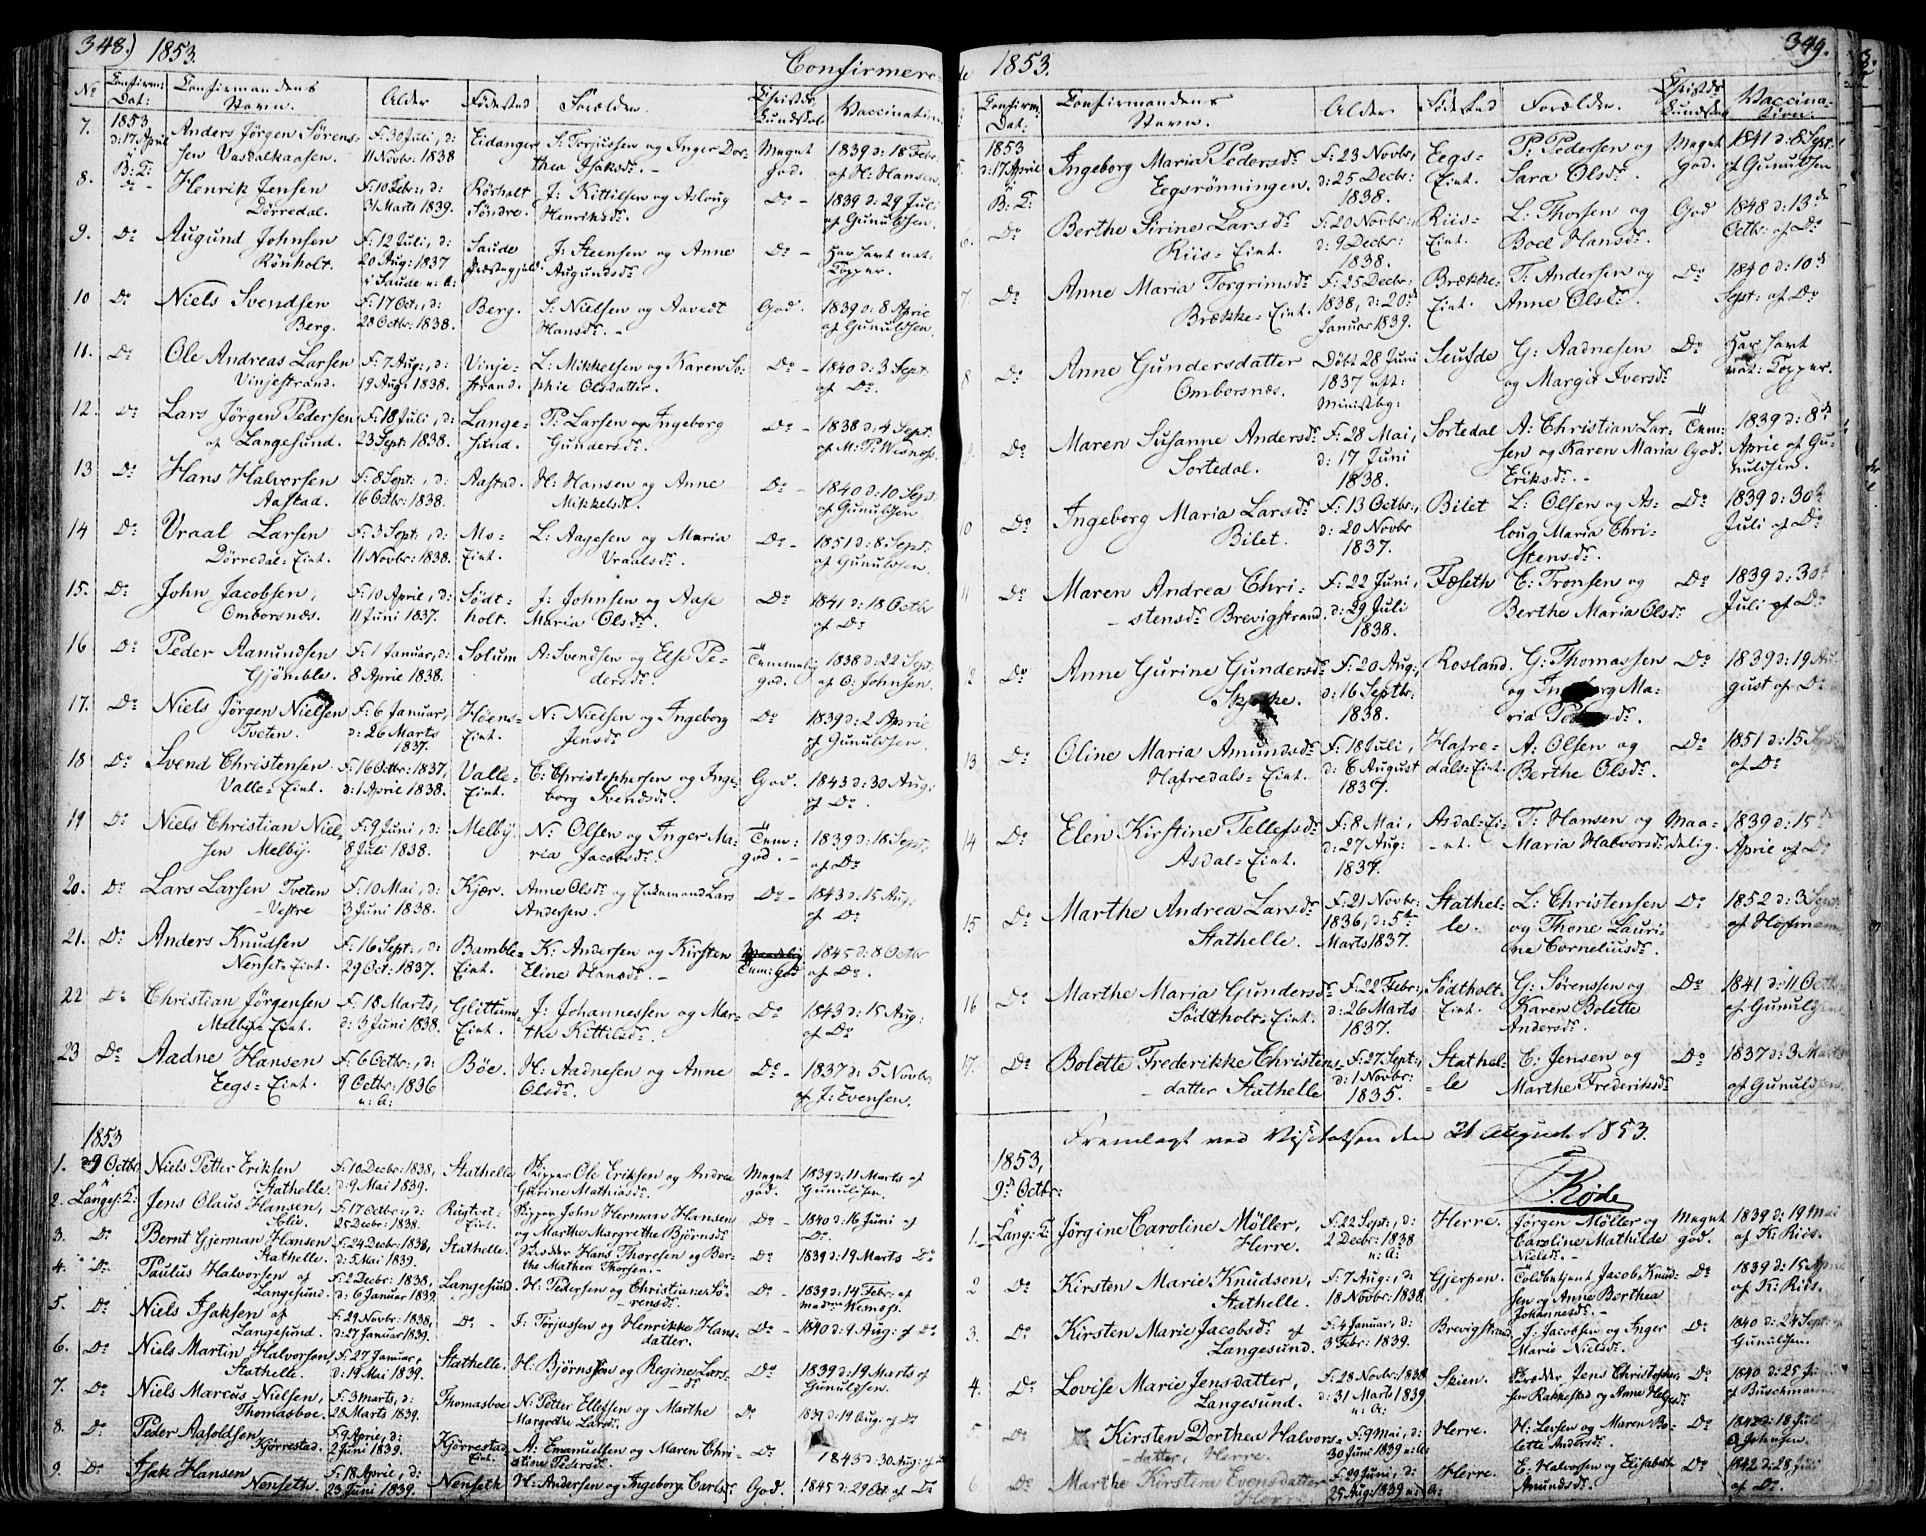 348.) 1853.
Confirmere-
No
Confirm: Dat:
Confirmandens Navn.
Alder
Fødested
Forældre.
Christd: Kundskab
Vaccination
7. 1853 d: 17 April i B: K: Anders Jørgen Sørensen Vasdalkaasen. F: 30 Juli, d: 11 Novbr: 1838 Eidanger S: Torjussen og Inger Dorthea Isaksdr. - Meget god. 1839 d: 18 Febr: af H: Hansen.
8. Do - Henrik Jensen Dørredal. F: 10 Febr:, d: 31 Marts 1839. Rørholt Søndre. J: Kittilsen og Asloug Henriksdr. Do - 1839 d: 29 Juli af Gunuldsen
9. Do Augund Johnsen Rönholt. F: 12 Juli, d: 20 Aug: 1837 i Saude u: A: Saude Præstegjeld J: Steensen og Anne Augundsdr. Do - Har havt nat: Kopper.
10 Do Niels Svendsen Berg. F: 17 Oct:, d: 28 Octbr: 1838. Berg. S: Nielsen og Aavedt Hansdr. - God. 1839 d: 8 April af Gunuldsen.
11. Do Ole Andreas Larsen Vinjestrand. F: 7 Aug:, d: 19 Aug: 1838. Vinjestrand. L: Mikkelsen og Karen Sophie Olsdatter. Do - 1840 d: 3 Sept. af Do.
12. Do Lars Jörgen Pedersen af Langesund. F: 18 Juli, d: 23 Sept: 1838. Langesund. P: Larsen og Ingeborg Gundersdr. Do - 1838 d: 4 Sept. af M: P: Wisnæs.
13 Do Hans Halvorsen Aastad. F: 8 Sept:, d: 16 Octbr: 1838. Aastad. H: Hansen og Anne Mikkelsdr. Do - 1840 d: 10 Sept: af Gunuldsen
14 Do Vraal Larsen Dörredal-Eint. F: 3 Sept:, d: 11 Novbr: 1838. Mo-Eint. L: Aagesen og Maria Vraalsdr. Do - 1851 d: 8 Sept: af Gunuldsen.
15. Do John Jacobsen, Omborsnæs. F: 10 April, d: 11 Juni 1837. Södtholt. J: Johnsen og Aase Maria Olsdr. Do 1841 d: 18 Octbr af Do
16 Do Peder Aamundsen Gjömble. F: 1 Januar, d: 8 April 1838. Solum A: Svendsen og Else Pedersdr. Temmelig god. 1838 d: 22 Sept: af O: Johnsen.
17. Do Niels Jörgen Nielsen Tveten. F: 6 Januar, d: 26 Marts 1837. Höens-Eint. N: Nielsen og Ingeborg Jensdr. Do 1839 d: 2 April af Gunuldsen.
18 Do Svend Christensen Valle-Eint. F: 16 Octbr: 1837, d: 1 April 1838. Valle-Eint. C: Christophersen og Ingeborg Svendsdr. God. 1843 d: 30 Aug: af Do.
19 Do Niels Christian Nielsen Melby. F: 9 Juni, d: 8 Juli 1838. Melby. N: Olsen og Inger Maria Jacobsdr. Tem: god. - 1839 d: 18 Sept: af Do
20. Do Lars Larsen Tveten Vestre F: 10 Mai, d: 3 Juni 1838. Kjær. Anne Olsdr og Enkemand Lars Andersen. Do - 1843 d: 15 Aug: af Do.
21. Do Anders Knudsen Nenset-Eint. F: 16 Sept:, d: 29 Oct: 1837. Bamble-Eint. K: Andersen og Kirsten Eline Hansdr. - Tem: God 1845 d: 8 Octbr af Do.
22 Do Christian Jörgensen Melby-Eint. F: 18 Marts, d: 3 Juni 1838. Glittums-Eint. J: Johannessen og Marthe Kittilsdr. Do 1843 d: 15 Aug: af Do
23 Do Aadne Hansen Eegs-Eint. F: 6 Octbr:, d: 9 Octbr: 1836 u: A: Böe. H: Aadnesen og Anne Olsdr. Do - 1837 d: 5 Novbr: af J: Evensen.
1853
1. 9 Octbr Niels Petter Eriksen Stathelle. F: 10 Decbr: 1838, d: 9 Mai 1839. Stathelle Skipper Ole Eriksen og Andrea Gurine Mathiasdr. Meget god. 1839 d: 11 Marts af Gunuldsen.
2. i Langes: K: Jens Olaus Hansen, Aslie. F: 17 Octbr:, d: 25 Decbr: 1838. Rugtvet-Eint. Skipper John Herman Hansen og Marthe Margrethe Björnsdr Do - 1840 d: 16 Juni af Do.
3. Do Bernt Gjerman Hansen Stathelle. F: 24 Decbr: 1838, d: 5 Mai 1839. Stathelle. Skredder Hans Thoresen og Berthe Mathea Thorsen. - Do 1839 d: 19 Marts Do
4. Do Paulus Halvorsen af Langesund. F: 2 Decbr: 1838, d: 6 Januar 1839 Langesund. H: Pedersen og Christiane Sörensdr: Do - 1839 d: 14 Febr: af madme Wemøp.
5. Do Niels Isaksen af Langesund. F: 29 Novbr: 1838, d: 27 Januar 1839. Do - I: Torjussen og Henrikke Hansdatter. Do - 1840 d: 4 Aug: af Do
6. Do Niels Martin Halvorsen, Stathelle. F: 27 Januar, d: 19 Mai 1839. Stathelle. H: Björnsen og Regine Larsdr Do 1839 d: 19 Marts af Gunuldsen.
7. Do Niels Marcus Nielsen, Thomasboe. F: 3 Marts, d: 28 Marts 1839. Thomasboe N: Petter Ellefsen og Marthe Margrethe Larsdr. Do 1839 d: 19 Aug. af Do
8. Do Peder Aasoldsen, Kjörrestad. F: 9 April, d: 2 Juni 1839. Kjörrestad Eint. A: Emanuelsen og Maren Christine Pedersdr. Do 1843 d: 30 Aug: af Do
9. Do Isak Hansen Nenseth. F: 18 April, d: 23 Juni 1839. Nenseth H: Andersen og Ingeborg Carlsdr God. 1845 d: 29 Oct. af Do
de 1853. 349.
Confirm: Dat:
Confirmandens Navn.
Alder
Födested
Forældre.
Christd: Kundskab
Vaccination.
1853 d: 17 April i B: K: Ingeborg Maria Pedersdr Eegsrönningen. F: 23 Novbr, d: 25 Decbr: 1838. Eegs-Eint. P: Pedersen og Sara Olsdr. Meget God. 1841 d: 8 Sept: af Gunuldsen
6. Do Berthe Sirine Larsdr Riis-Eint. F: 20 Novbr:, d: 9 Decbr: 1838. Riis-Eint. L: Thorsen og Boel Hansdr. God 1848 d: 13de Octbr: af Do
7. Do Anne Maria Torgrimsdr Brække-Eint. F: 25 Decbr: 1838, d: 20de Januar 1839. Brække-Eint. T: Andersen og Anne Olsdr. Do 1840 d: 10de Sept: af Do
8 Do Anne Gundersdatter Omborsnæs. Döbt 28 Juni 1837 eft: Ministbg: Seufde G: Aadnesen og Margit Iversdr Do Har havt nat: Kopper.
9. Do Maren Susanne Andersdr Sortedal. F: 28 Mai, d: 17 Juni 1838. Sortedal A: Christian Larsen og Karen Maria Eriksdr. - Tem: God. 1839 d: 8de April af Gunuldsen.
10 Do Ingeborg Maria Larsdr Bilet. F: 13 Octbr:, d: 20 Novbr 1837. Bilet L: Olsen og Asloug Maria Christensdr. Do 1839 d: 30te Juli af Do
11 Do Maren Andrea Christensdr Brevigstrand. F: 22 Juni, d: 29 Juli 1838. Fæseth C: Tronsen og Berthe Maria Olsdr. Do 1839 d: 30te Juli af Do
12 Do Anne Gurine Gundersdr F: 20 Aug:, d: 16 Septbr: 1838. Rosland. G: Thomassen og Ingeborg Maria Pedersdr. Do 1839 d: 19 August af Do
13 Do Oline Maria Amundsdr Hafredals-Eint. F: 18 Juli, d: 6 August 1837. Hafredals-Eint A: Olsen og Berthe Olsdr. Do 1851 d: 15 Sept: af Do
14 Do Elen Kirstine Tellefsdr Asdal-Eint. F: 8 Mai, d: 27 Aug: 1837. Asdal-Eint. T: Hansen og Maria Halvorsdr. Maadelig. 1839 d: 15de April af Do
15 Do Marthe Andrea Larsdr Stathelle. F: 21 Novbr: 1836, d: 5te Marts 1837. Stathelle. L: Christensen og Thone Laurine Corneliusdr. Do 1852 d: 3 Sept: af Homann
16 Do Marthe Maria Gundersdr Södtholt-Eint. F: 22 Febr:, d: 26 Marts 1837. Södtholt-Eint. G: Sörensen og Karen Bolette Andersdr. Do 1841 d: 11 Octbr af Gunuldsen
17. Do Bolette Frederikke Christensdatter Stathelle F: 27 Sept:, d: 1 Novbr: 1835. Stathelle C: Jensen og Marthe Frederiksdr Do 1837 d: 3 Marts af Gunuldsen.
Fremlagt ved Visitatsen den 21 August 1853.
Rode
1853, 9de Octbr: i
1. Lang: K: Jörgine Caroline Möller, Herre. F: 22 Sept:, d: 2 Decbr: 1838 u: A: Herre. Jørgen Möller og Caroline Mathilde Nielsdr. - Meget god. 1839 d: 19 Mai af K: Riis.
2 Do Kirsten Marie Knudsen, Stathelle. F: 7 Aug:, d: 18 Novbr: 1838. Gjerpen. Toldbetjent Jacob Knudsen og Anne Berthea Johannesdr. - Do 1839 d: 15 April af K: Riis.
3. Do Kirsten Marie Jacobsdr af Langesund. F: 4 Januar, d: 3 Febr: 1839. Brevigstrand J: Jacobsen og Inger Marie Nielsdr. Do 1840 d: 24 Sept: af Gunuldsen.
4. Do Lovise Marie Jensdatter, Langesund. F: 28 Novbr: 1838 d: 31 Marts 1839 u: A: Skien. Skredder Jens Christophersen Rakkestad og Anne Helgesdr Do 1840 d: 25 af Buschmann
5. Do Kirsten Dorthea Halvorsdatter, Herre. F: 9 Mai, d: 30 Juni 1839 u: A: Herre. H: Levsen og Maren Bolette Andersdr. Do 1842 d: 18 Juli Johnsen.
6. Do Marthe Kirstine Evensdatter Herre F: 29 Juni, d: 25 Aug: 1839 u: A: Herre. E: Halvorsen og Elisabeth Amundsdr. Do 1842 d: 28 af Do.